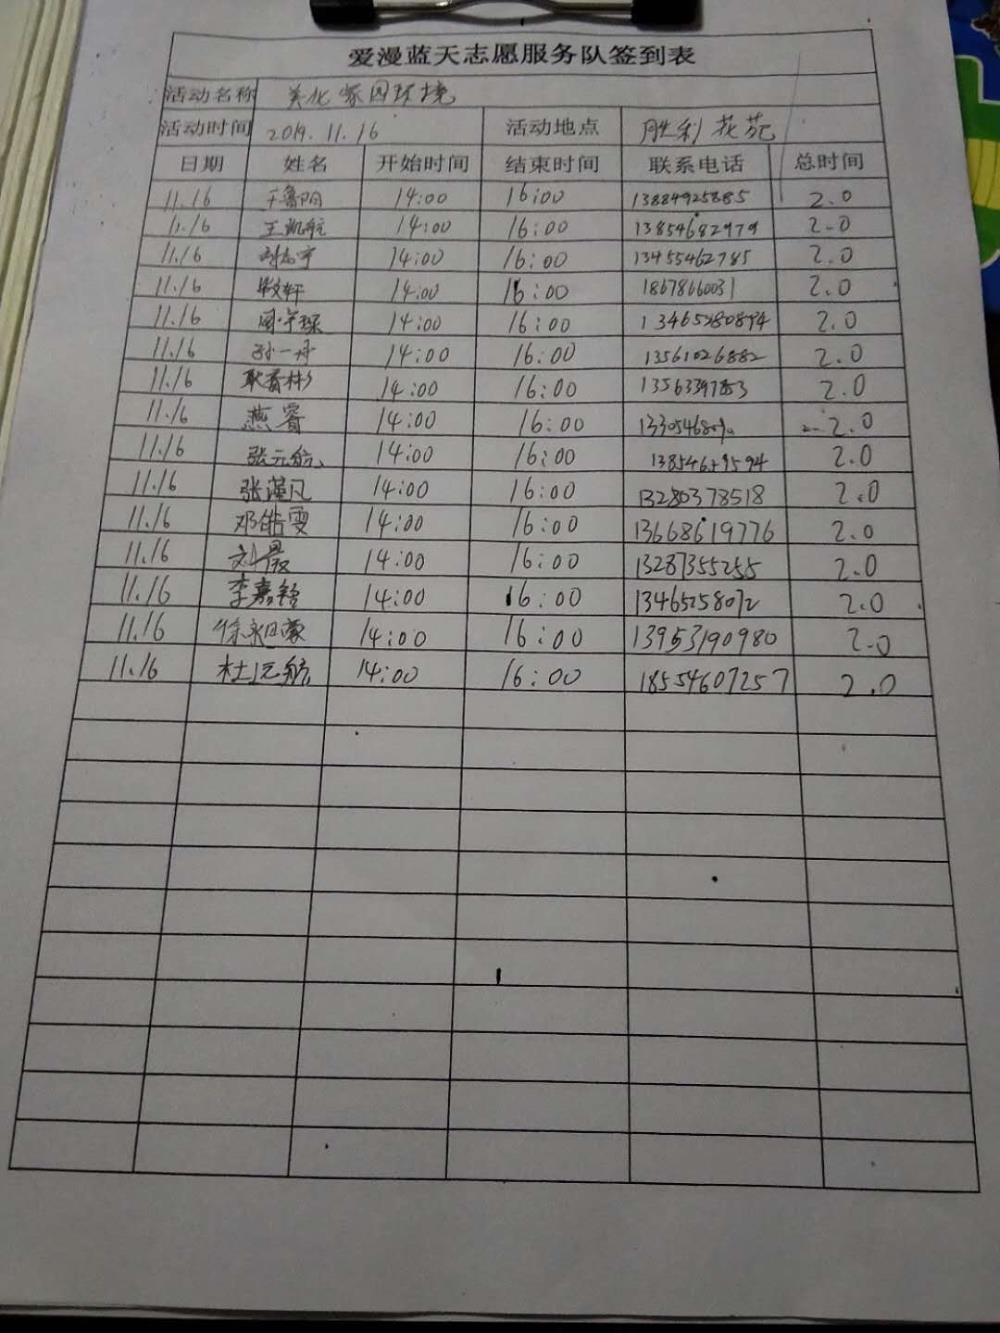 爱漫蓝天志愿服务队签到表
活动名称 美化家园环境
活动时间 2019.11.16 活动地点 胜利花苑
日期 姓名 开始时间 结束时间 联系电话 总时间
11.16 14:00 16:00 13884925885 2.0
11.16 王凯航 14:00 16:00 13854682979 2.0
11.16 14:00 16:00 13455462785 2.0
11.16 14:00 16:00 18678660031 2.0
11.16 14:00 16:00 2.0
11.16 孙一丹 14:00 16:00 13561026882 2.0
11.16 耿春彬 14:00 16:00 2.0
11.16 燕睿 14:00 16:00 2.0
11.16 张元航 14:00 16:00 2.0
11.16 张谨凡 14:00 16:00 13280378518 2.0
11.16 邓皓雯 14:00 16:00 13668619776 2.0
11.16 刘晨 14:00 16:00 13287355255 2.0
11.16 李嘉铭 14:00 16:00 13465258072 2.0
11.16 14:00 16:00 13953190980 2.0
11.16 杜远航 14:00 16:00 18554607257 2.0